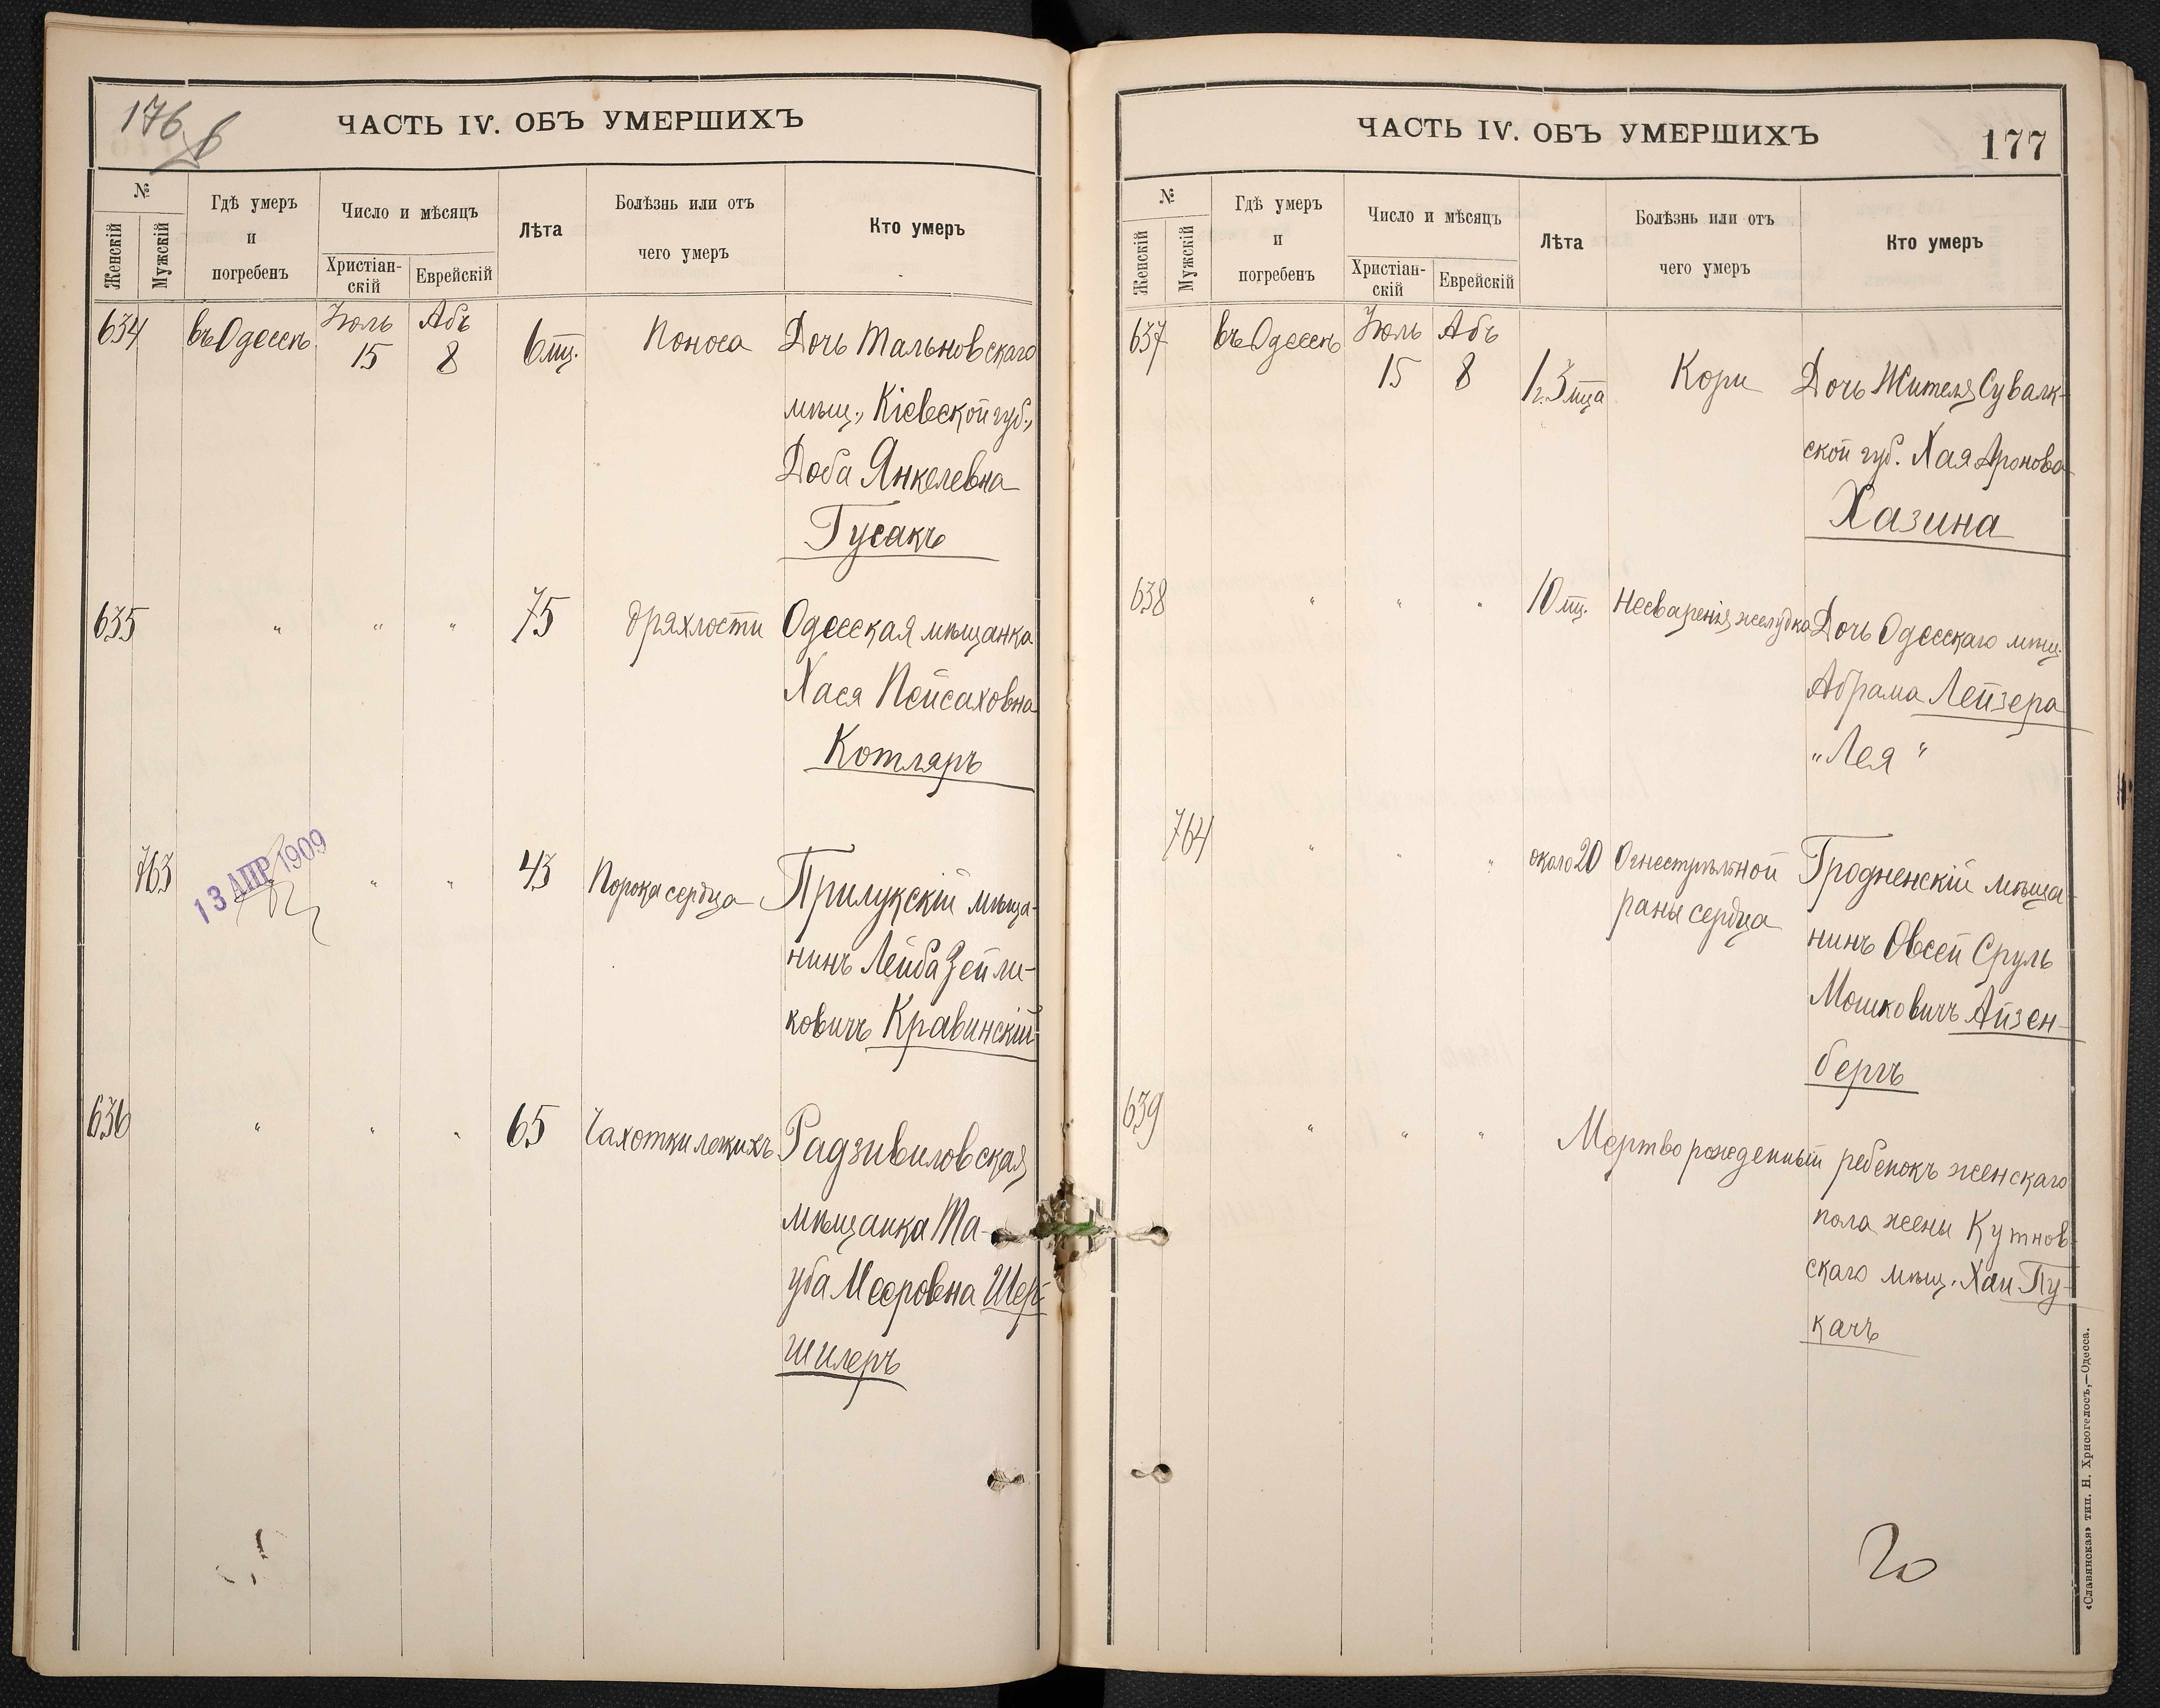 176
ЧАСТЬ IV. ОБЪ УМЕРШИХЪ
№
Женскій
Мужскій
Гдѣ умеръ
и
погребенъ
Число и мѣсяцъ
Христіан-
скій
Еврейскій
Лѣта
Болѣзнь или отъ
чего умеръ
Кто умеръ
634 въ Одессѣ Іюль Абъ
15 8 6 мц. Поноса Дочь Тальновскаго
мѣщ., Кіевской губ.,
Доба Янкелевна
Гусакъ
635 " " " 75 дряхлости Одесская мѣщанка
Хася Пейсаховна
Котляръ
763 " " " 43 Порока сердца Прилукскій мѣща-
нинъ Лейба Зейли-
ковичъ Кравинскій
13 АПР 1909
636 " " " 65 Чахотки легкихъ Радзивиловская
мѣщанка Та-
уба Мееровна Шер-
шилеръ
ЧАСТЬ IV. ОБЪ УМЕРШИХЪ
177
№
Женскій
Мужскій
Гдѣ умеръ
и
погребенъ
Число и мѣсяцъ
Христіан-
скій
Еврейскій
Лѣта
Болѣзнь или отъ
чего умеръ
Кто умеръ
637 въ Одессѣ Іюль Абъ
15 8 1 г. 3 мца Кори Дочь Жителя Сувалк-
ской губ. Хая Аронова
Хазина
638 " " " 10 мц. Несваренія желудка Дочь Одесскаго мѣщ.
Абрама Лейзера
"Лея"
764 " " " около 20 Огнестрѣльной Гродненскій мѣща-
раны сердца
нинъ Овсей Сруль
Мошковичъ Айзен-
бергъ
639 " " " Мертворожденный ребенокъ женскаго
пола жены Кутнов-
скаго мѣщ. Хаи Пу-
качъ
«Славянская» тип. Н. Хрисогелосъ,—Одесса.